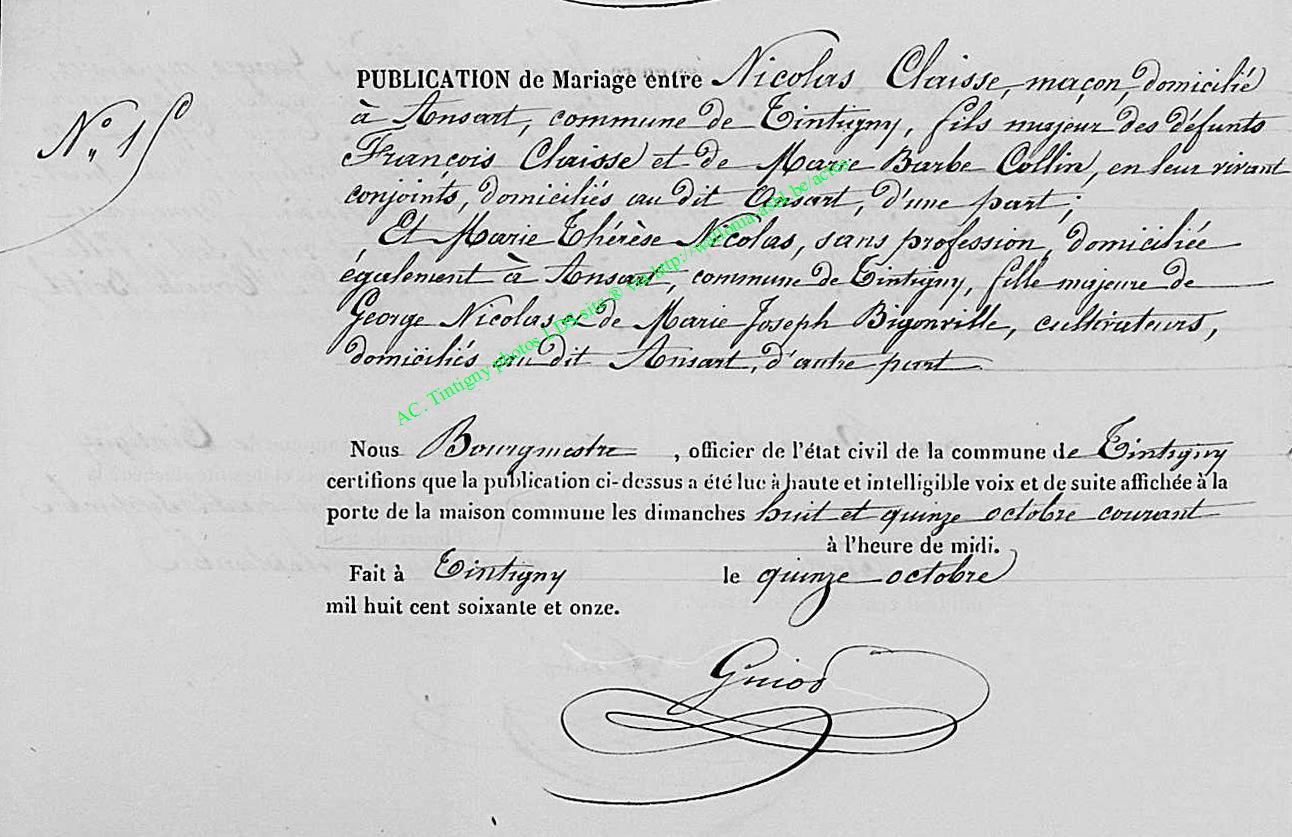 N° 15
PUBLICATION de Mariage entre Nicolas Claisse, maçon, domicilié
à Ansart, commune de Tintigny, fils majeur des défunts
François Claisse et de Marie Barbe Collin, en leur vivant
conjoints, domiciliés au dit Ansart, d'une part;
Et Marie Thérèse Nicolas, sans profession, domiciliée
également à Ansart, commune de Tintigny, fille majeure de
George Nicolas & de Marie Joseph Bigonville, cultivateurs,
domiciliés au dit Ansart, d'autre part
AC. Tintigny photos LDS site ® via http://wallonia.asbl.be/actes/
Nous Bourgmestre, officier de l'état civil de la commune de Tintigny
certifions que la publication ci-dessus a été lue à haute et intelligible voix et de suite affichée à la
porte de la maison commune les dimanches huit et quinze octobre courant
à l'heure de midi.
Fait à Tintigny le quinze octobre
mil huit cent soixante et onze.
Guiot